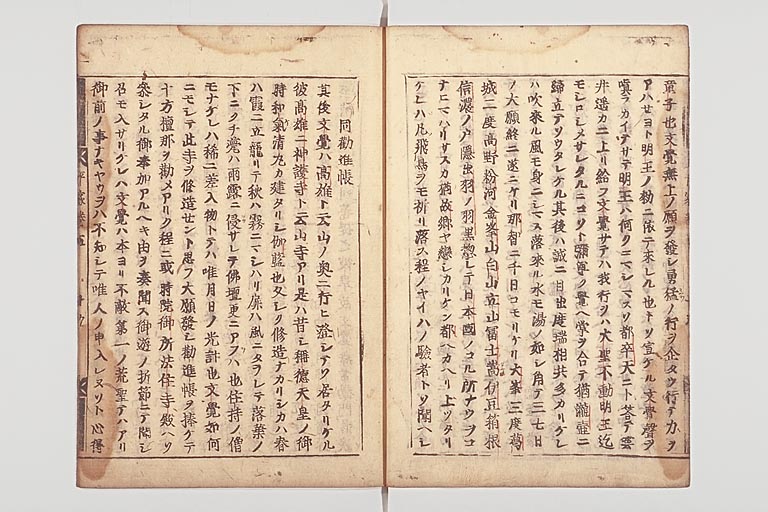 童子也文覚無上ノ願ヲ發シ勇猛ノ行ヲ企タウ行テ力ヲ
アハサヨト明王ノ勅ニ依テ来レル也トソ宣ケル文覚聲ヲ
嗔ラカイテサテ明王ハ何クニマシマスソ都卒天ニト答テ雲
井遥カニ上リ給フ文覚サテハ我行ヲハ大聖不動明王迄
モシロシメサレタルニコソト弥
歸立テソウタレケル其後ハ誠ニ目出度瑞相共多カリケレ
ハ吹来ル風モ身ニシマス落来ル水モ湯ノ如シ角テ三七日
ノ大願終ニ遂ニケリ那智ニ千日コモリケリ大峯三度葛
城二度高野粉河金峯山白山立山冨士嵩伊豆箱根
信濃ノ戸隠出羽ノ羽黒惣シテ日本國ノコル所ナウヲコ
ナヒマハリサスカ猶故郷ヤ恋シカリケン都ヘカヘリ上ツタリ
ケレハ凡飛鳥ヲモ祈リ落ス程ノヤイハノ驗者トソ聞ヘシ
同勧進帳
其後文覚ハ高雄ト云山ノ奥ニ行ヒ澄シテソ居タリケル
彼高雄ニ神護寺ト云山寺アリ是ハ昔シ稱徳天皇ノ御
時和氣清丸カ建タリシ伽藍也久シク修造ナカリシカハ春
ハ霞ニ立籠リテ秋ハ霧ニマシハリ扉ハ風ニタヲレテ落葉ノ
下ニクチ甍ハ雨露ニ侵サレテ佛壇更ニアラハ也住持ノ僧
モナケレハ稀ニ差入物トテハ唯月日ノ光計也文覚如何
ニモシテ此寺ヲ修造セント思フ大願發シ勧進帳ヲ捧ケテ
十方檀那ヲ勧メアリク程ニ或時院御所法住寺殿ヘソ
参シタル御奉加アルヘキ由ヲ奏聞ス御遊ノ折節ニテ聞シ
召モ入サリケレハ文覚ハ本ヨリ不敵第一ノ荒聖テハアリ
御前ノ事ナキヤウヲハ不知シテ唯人ノ申入レヌソト心得